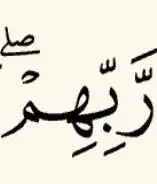 رَّبِّهِمْۖ